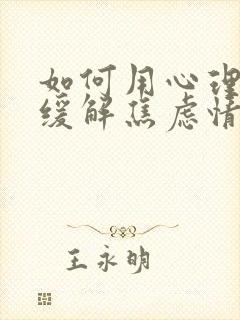 如何用心理
缓解焦虑情
王永明